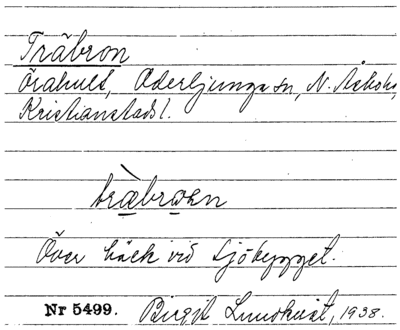 Träbron
Örahult, Oderljunga sn, N. Åsbohd,
Kristianstads l.
træ̀bro̤en
Över bäck vid Sjöbygget.
Nr 5499. Birgit Lundkvist, 1938.